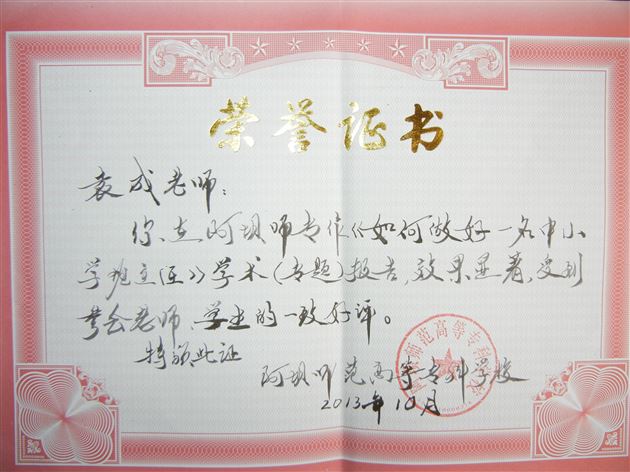 荣誉证书
袁成老师：
你在阿坝师专作《如何做好一名中小
学班主任》学术（专题）报告，效果显著，受到
与会老师、学生的一致好评。
特颁此证
阿坝师范高等专科学校
2013年10月
师范高等专科学校